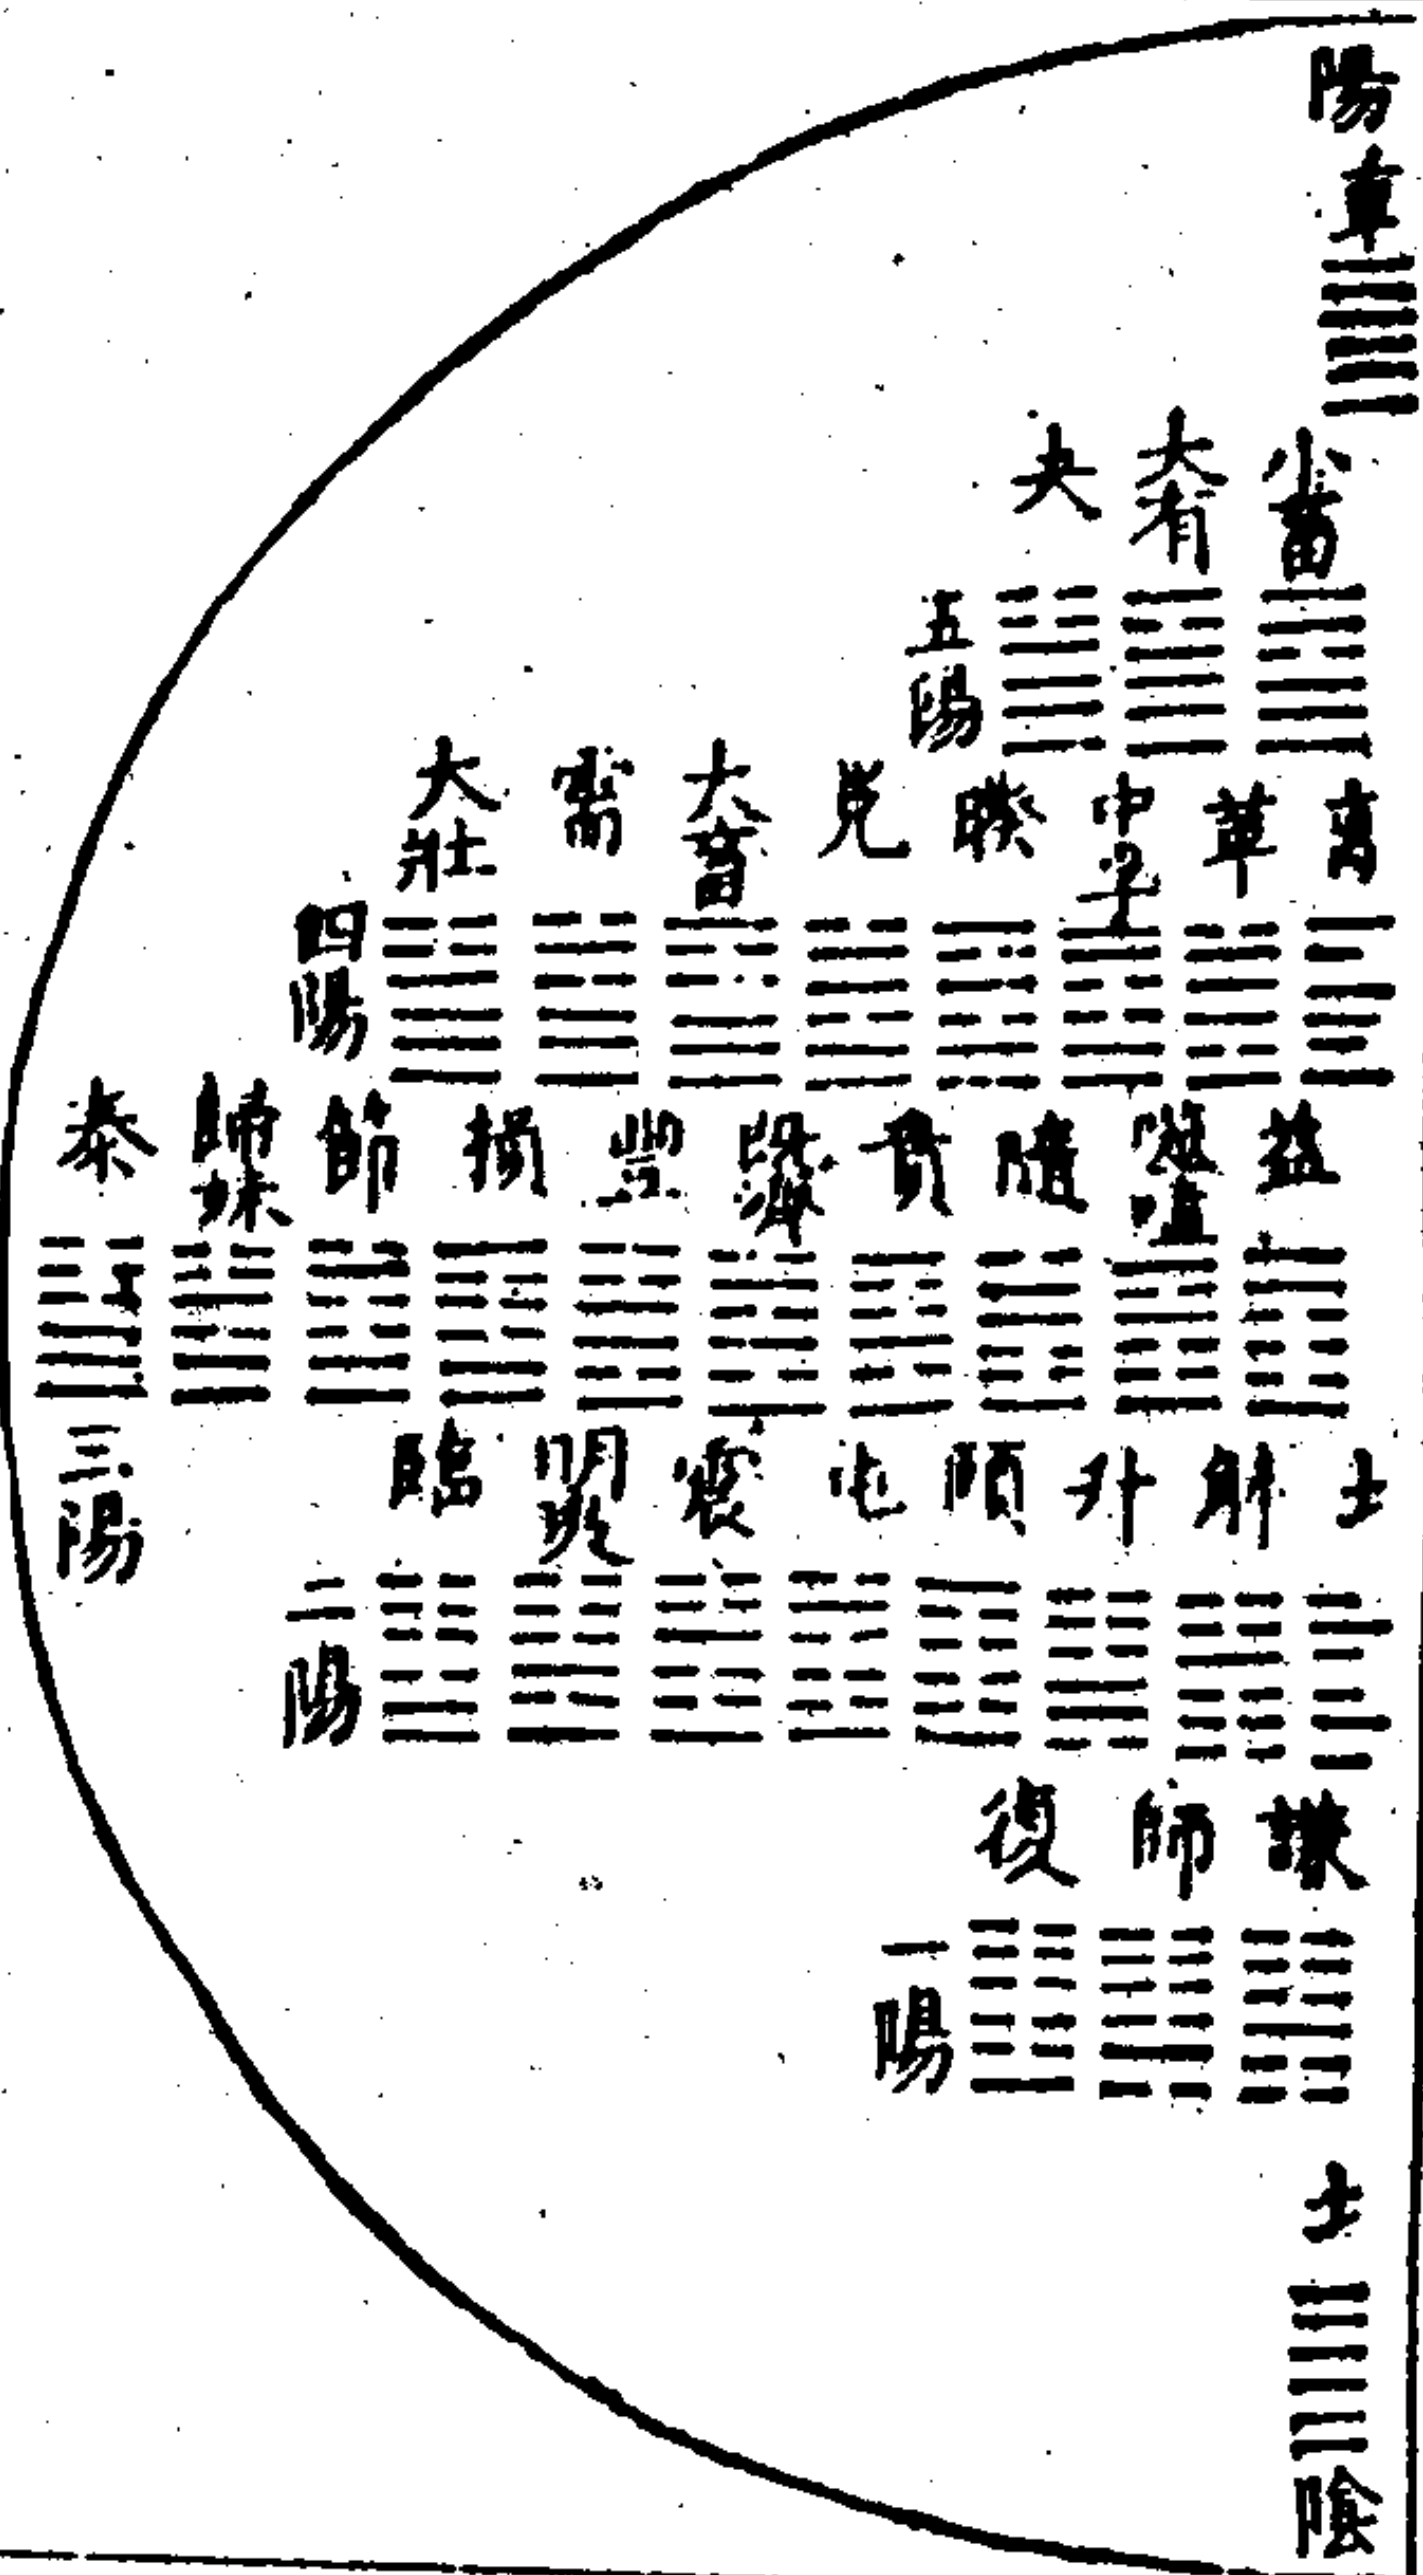 陽
小畜 大有 夬
五陽
離 革 中孚 睽 兌 大畜 需 大壯
四陽
益 噬嗑 隨 賁 既濟 豐 損 節 歸妹 泰
三陽
解 升 頤 屯 震 明夷 臨
二陽
謙 師 復
一陽
陰